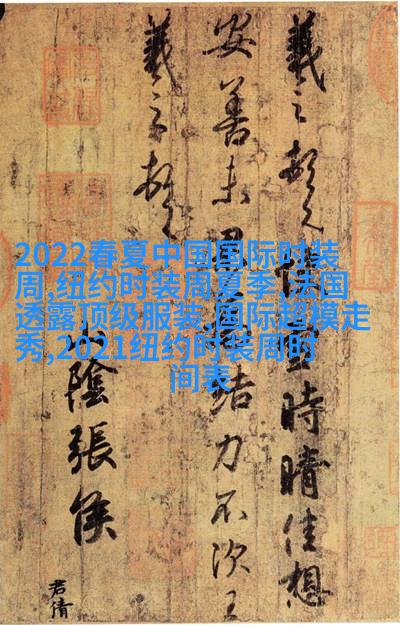 2022春夏中国国际时装
周,纽约时装周夏季,法国
透露顶级服装,国际超模走
秀,2021纽约时装周时
间表
羲之頓首快雪時晴佳想
安善未果為結力不次王
羲之頓首
山陰張侯
君倩